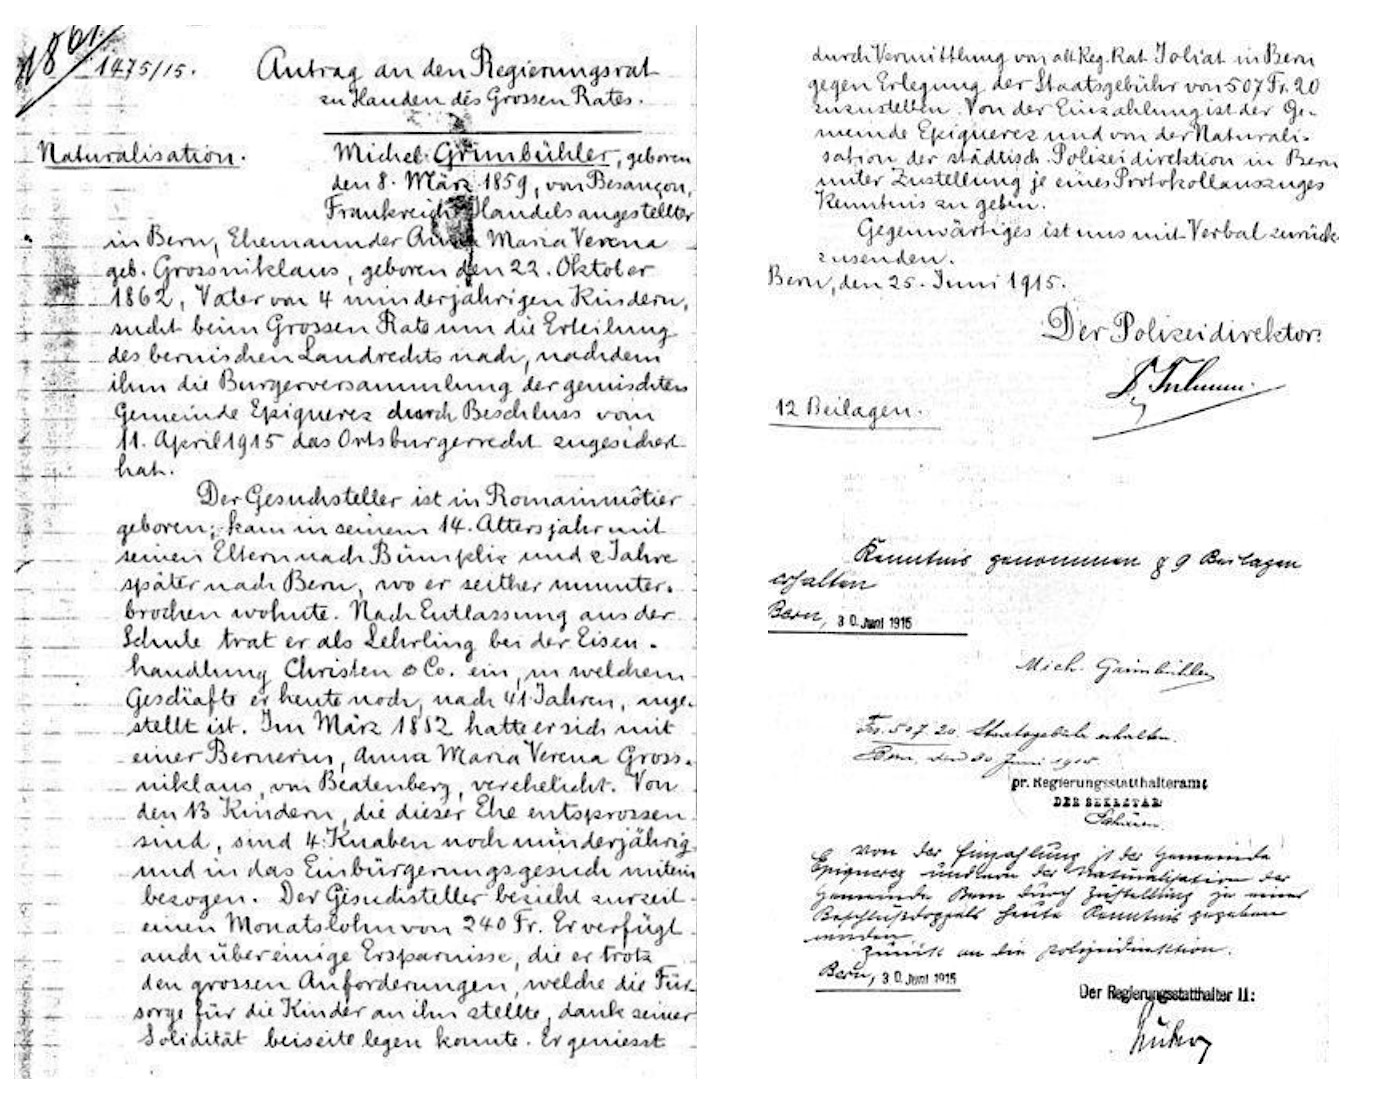 1861.
1475/15.
Antrag an den Regierungsrat
zu Handen des Grossen Rates.
Naturalisation.
Michel Grimbühler, geboren
den 8. März 1859, von Besançon,
Frankreich, Handelsangestellter
in Bern, Ehemann der Anna Maria Verena
geb. Grossniklaus, geboren den 22. Oktober
1862, Vater von 4 minderjährigen Kindern,
sucht beim Grossen Rate um die Erteilung
des bernischen Landrechts nach, nachdem
ihm die Burgerversammlung der gemischten
Gemeinde Epiquerez durch Beschluss vom
11. April 1915 das Ortsburgerrecht zugesichert
hat.
Der Gesuchsteller ist in Romainmôtier
geboren; kam in seinem 14. Altersjahr mit
seinen Eltern nach Bümpliz und 2 Jahre
später nach Bern, wo er seither ununter-
brochen wohnte. Nach Entlassung aus der
Schule trat er als Lehrling bei der Eisen-
handlung Christen & Co. ein, in welchem
Geschäfte er heute noch, nach 41 Jahren, ange-
stellt ist. Im März 1882 hatte er sich mit
einer Bernerin, Anna Maria Verena Gross-
niklaus, von Beatenberg, verehelicht. Von
den 13 Kindern, die dieser Ehe entsprossen
sind, sind 4 Knaben noch minderjährig
und in das Einbürgerungsgesuch mitein-
bezogen. Der Gesuchsteller bezieht zurzeit
einen Monatslohn von 240 Fr. Er verfügt
auch über einige Ersparnisse, die er trotz
den grossen Anforderungen, welche die Für-
sorge für die Kinder an ihn stellte, dank seiner
Solidität beiseite legen konnte. Er geniesst
durch Vermittlung von alt Reg. Rat Joliat in Bern
gegen Erlegung der Staatsgebühr von 507 Fr. 20
zuzustellen. Von der Einzahlung ist der Ge-
meinde Epiquerez und von der Naturali-
sation der städtisch. Polizeidirektion in Bern
unter Zustellung je eines Protokollauszuges
Kenntnis zu geben.
Gegenwärtiges ist uns mit Verbal zurück-
zusenden.
Bern, den 25. Juni 1915.
Der Polizeidirektor:
12 Beilagen.
Kenntnis genommen & 9 Beilagen
erhalten
Bern, 30. Juni 1915
Mich. Grimbühler
Frs. 507.20 Staatsgebühr erhalten.
Bern, den 30 Juni 1915
pr. Regierungsstatthalteramt
DER SEKRETÄR:
Von der Einzahlung ist der Gemeinde
Epiquerez und von der Naturalisation der
Gemeinde Bern durch Zustellung je eines
Beschlussdoppels heute Kenntnis gegeben
worden.
Zurück an die Polizeidirektion.
Bern, 30. Juni 1915
Der Regierungsstatthalter II: